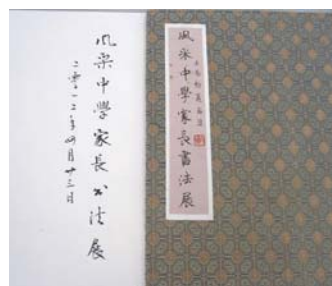 風采中學家長書法展
二零一二年四月廿三日
風采中學家長書法展